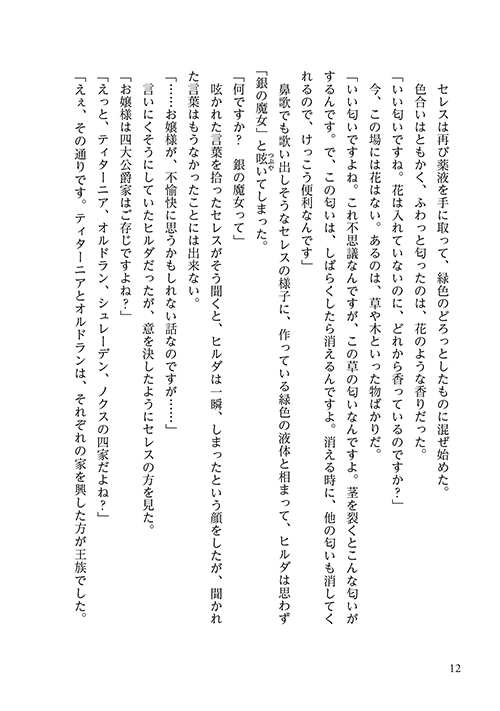 セレスは再び薬液を手に取って、緑色のどろっとしたものに混ぜ始めた。
色合いはともかく、ふわっと匂ったのは、花のような香りだった。
「いい匂いですね。花は入れていないのに、どれから香っているのですか？」
今、この場には花はない。あるのは、草や木といった物ばかりだ。
「いい匂いですよね。これ不思議なんですが、この草の匂いなんですよ。茎を裂くとこんな匂いが
するんです。で、この匂いは、しばらくしたら消えるんですよ。消える時に、他の匂いも消してく
れるので、けっこう便利なんです」
鼻歌でも歌い出しそうなセレスの様子に、作っている緑色の液体と相まって、ヒルダは思わず
「銀の魔女」と呟いてしまった。
つぶや
「何ですか？　銀の魔女って」
呟かれた言葉を拾ったセレスがそう聞くと、ヒルダは一瞬、しまったという顔をしたが、聞かれ
た言葉はもうなかったことには出来ない。
「……お嬢様が、不愉快に思うかもしれない話なのですが……」
言いにくそうにしていたヒルダだったが、意を決したようにセレスの方を見た。
「お嬢様は四大公爵家はご存じですよね？」
「えっと、ティターニア、オルドラン、シュレーデン、ノクスの四家だよね？」
「えぇ、その通りです。ティターニアとオルドランは、それぞれの家を興した方が王族でした。
12